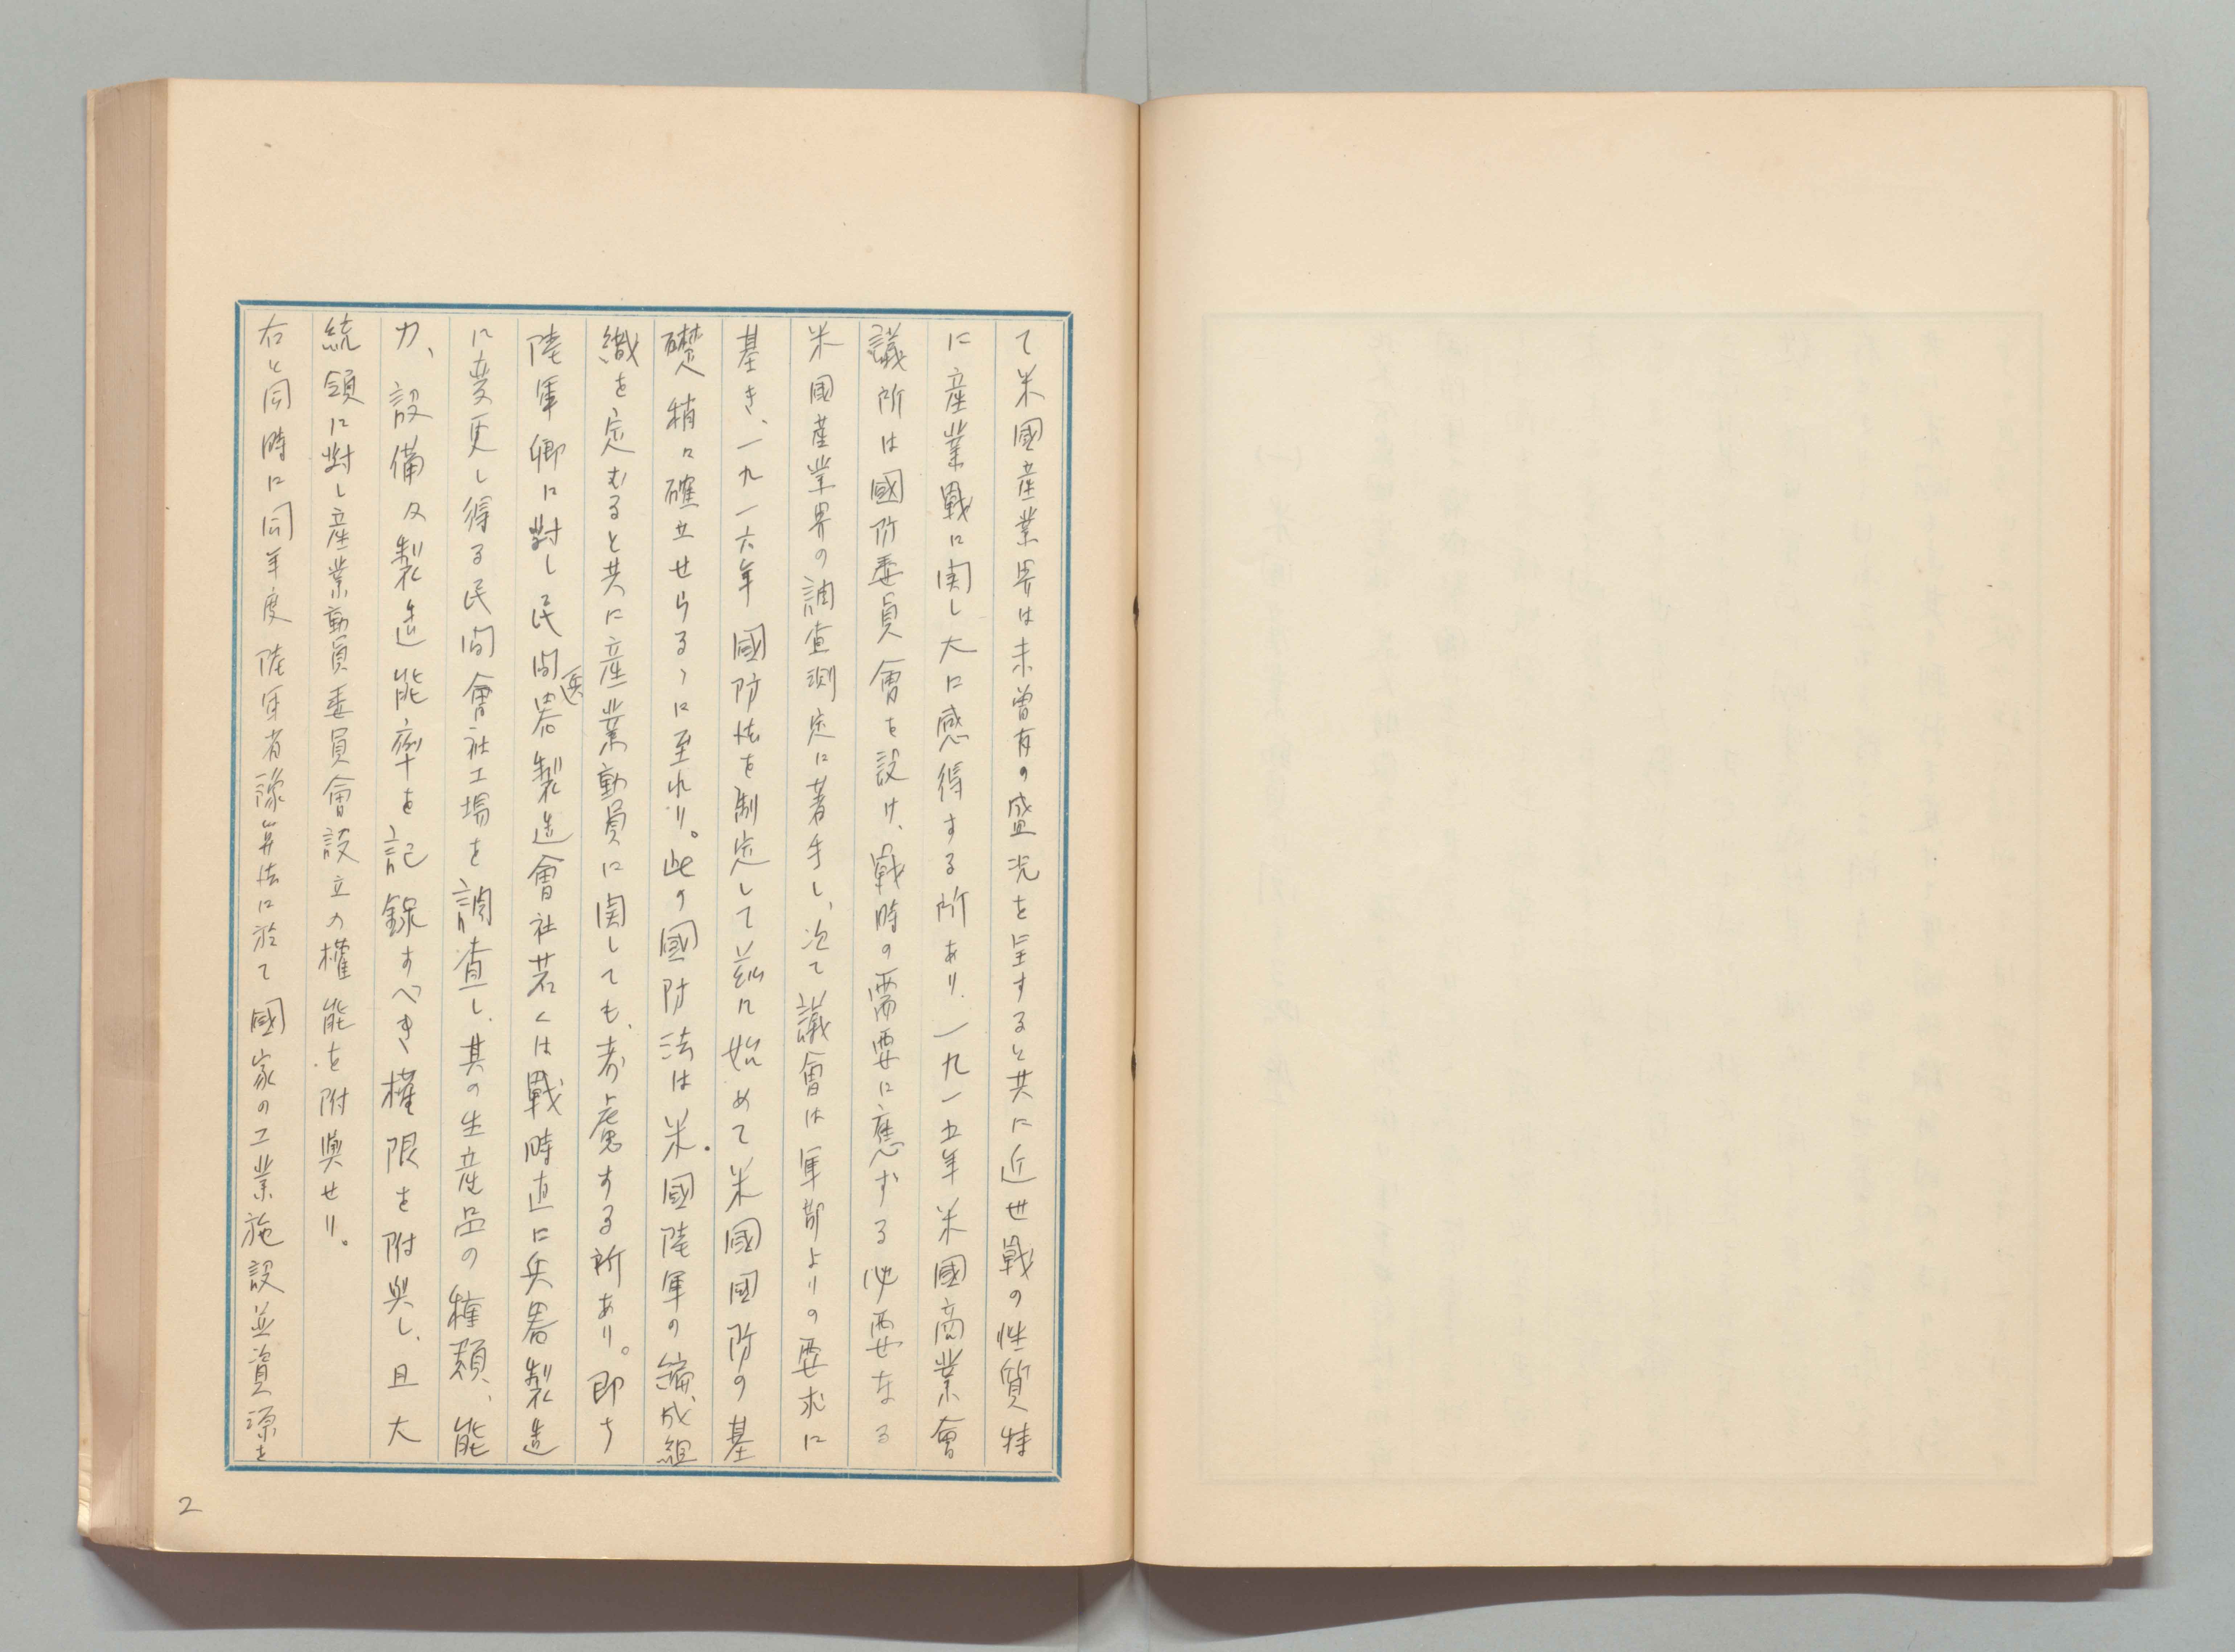 て米國産業界は未曾有の盛況を呈すると共に近世戦の性質特
に産業戦に関し大に感得する所あり、一九一五年米國商業會
議所は國防委員會を設け、戦時の需要に應ずる必要なる
米國産業界の調査測定に著手し、次で議會は軍部よりの要求に
基き、一九一六年國防法を制定して茲に始めて米國國防の基
礎稍々確立せらるゝに至れり。此の國防法は米國陸軍の編成組
織を定むると共に産業動員に関しても、考慮する所あり。即ち
陸軍卿に對し民間兵器製造會社若くは戦時直に兵器製造
に変更し得る民間會社工場を調査し、其の生産品の種類、能
力、設備及製造能率を記録すべき權限を附與し、且大
統領に對し産業動員委員會設立の權能を附與せり。
右と同時に同年度陸軍省豫算法に於て國家の工業施設並資源を
2